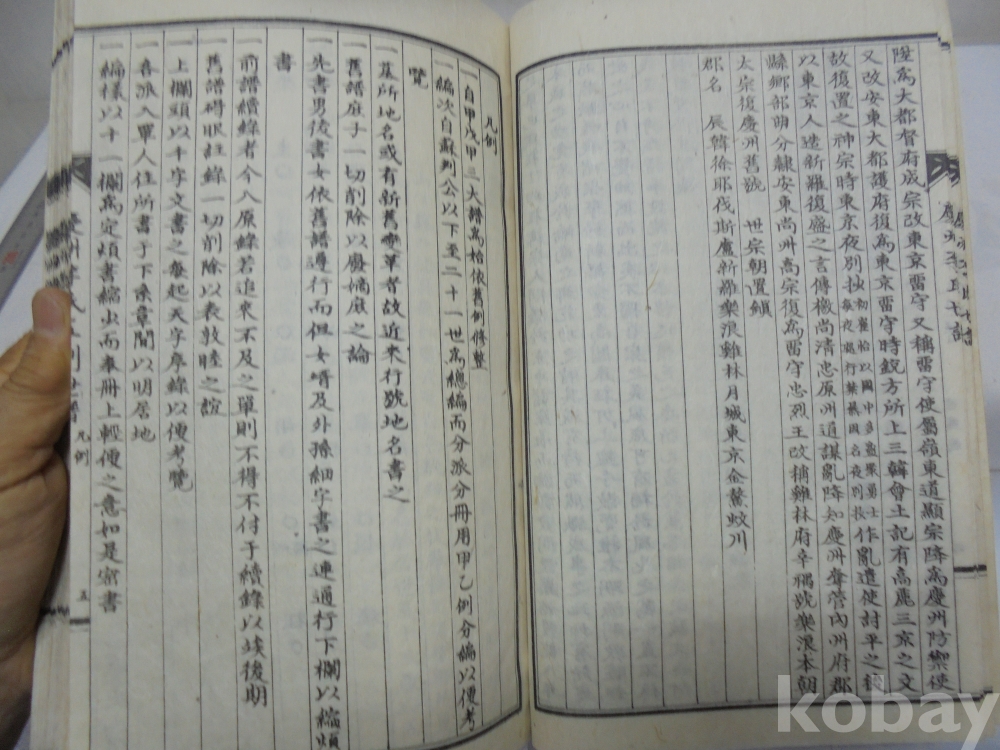 陞爲大都督府成宗改東京留守又稱留守使屬嶺東道顯宗降爲慶州防禦使
又改安東大都護府復爲東京留守時銳方所上三韓會土記有高麗三京之文
故復置之神宗時東京夜別抄 作亂遣使討平之
以東京人造新羅復盛之言傳檄尙淸忠原州道謀亂降知慶州奪管內州府郡
縣鄕部曲分隸安東尙州高宗復爲留守忠烈王改稱雞林府 號樂浪本朝
太宗復慶州舊號 世宗朝置鎭
郡名 辰韓徐耶伐斯盧新羅樂浪雞林月城東京金鰲蚊川
凡例
一自甲戊甲三大譜爲始依舊例修整
一編次自蘇判公以下至二十一世爲總編而分派分冊用甲乙例分編以便考
覽
一墓所地名或有新舊 故近來行號地名書之
一舊譜庶子一切削除以廢嫡庶之論
一先書男後書女依舊譜遵行而但女婿及外孫細字書之連通行下欄以編煩
書
一前譜續錄者今入原錄若追來不及之單則不得不付于續錄以竢後期
一舊譜碍眼註錄一切削除以表敦睦之誼
一上欄頭以千字文書之每起天字序錄以便考覽
一各派入單人住所書于下系章間以明居地
一編樣以十一欄爲定煩書縮少而每冊上輕便之意如是密書
凡例
五
kobay